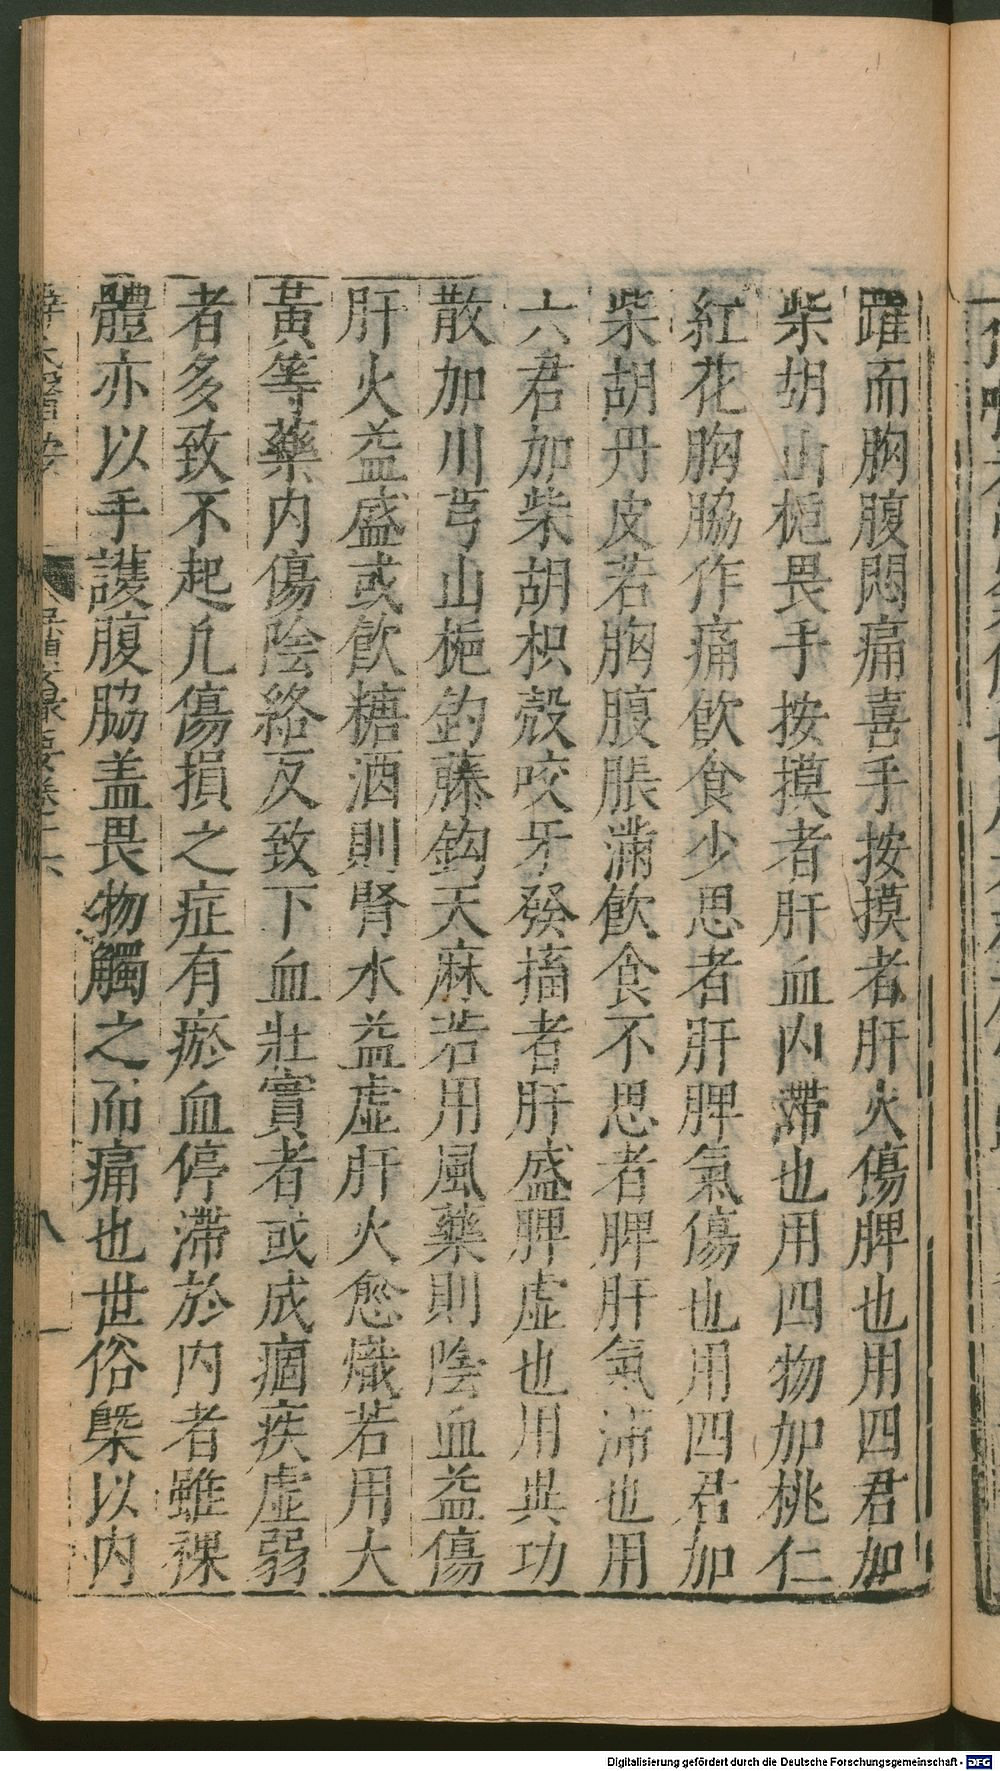 躍而胸腹悶痛喜手按摸者肝火傷脾也用四君加
柴胡山梔畏手按摸者肝血內滯也用四物加桃仁
紅花胸脇作痛飲食少思者肝脾氣傷也用四君加
柴胡丹皮若胸腹脹滿飲食不思者脾肝氣滯也用
六君加柴胡枳殼咬牙發搐者肝盛脾虛也用異功
散加川芎山梔釣藤鈎天麻若用風藥則陰血益傷
肝火益盛或飲糖酒則腎水益虛肝火愈熾若用大
黃等藥內傷陰絡反致下血壯實者或成痼疾虛弱
者多致不起凡傷損之症有瘀血停滯於內者雖裸
體亦以手護腹脇盖畏物觸之而痛也世俗槩以內
薛氏醫按
八
Digitalisierung gefördert durch die Deutsche Forschungsgemeinschaft - DFG